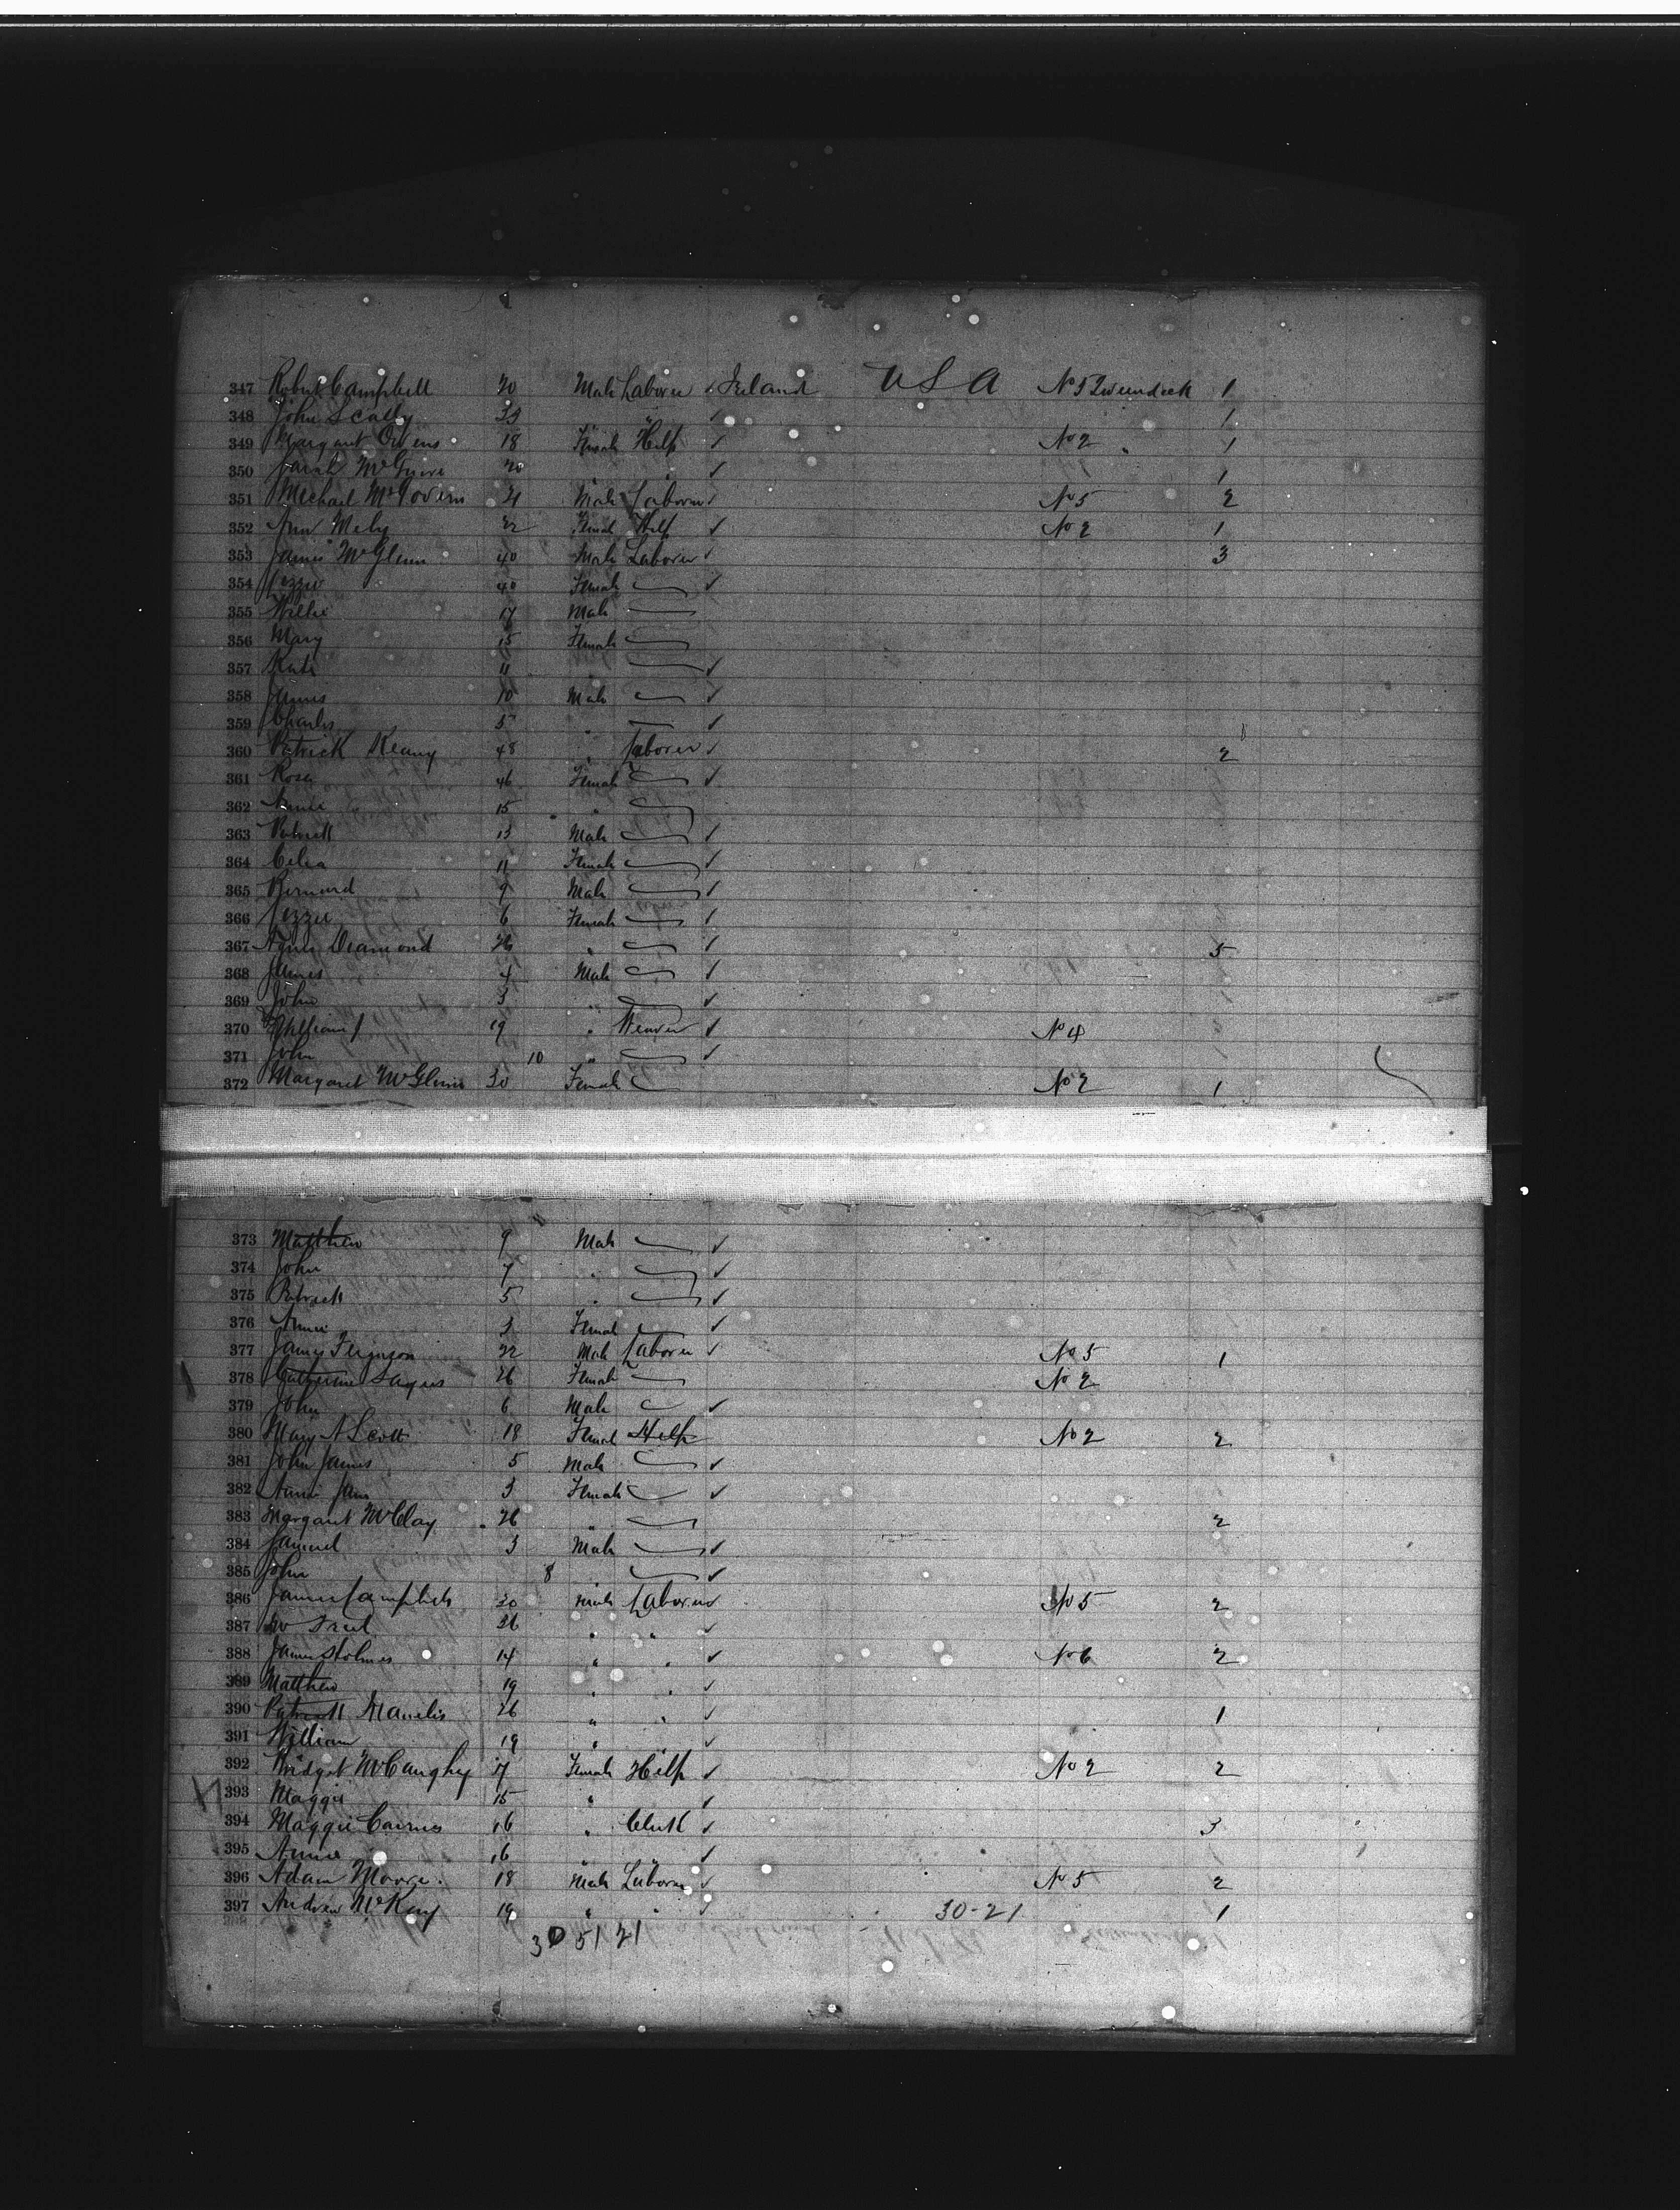 347 Robert Campbell 20 Male Laborer ✓ Ireland USA No 5 Tweendeck 1
348 John Scally 33 " ✓ 1
349 Margaret Owens 18 Female Help ✓ No 2 " 1
350 Sarah McGuire 20 " " ✓ 1
351 Michael McGovern 21 Male Laborer ✓ No 5 2
352 Ann 22 Female Help ✓ No 2 1
353 James McGlinn 40 Male Laborer ✓ 3
354 Lizzie 40 Female ✓
355 Willie 17 Male
356 Mary 15 Female
357 Kate 11 " ✓
358 James 10 Male ✓
359 Charles 5 " ✓
360 Patrick Keany 48 " Laborer ✓ 2
361 Rose 46 Female ✓
362 Annie 15 "
363 Patrick 13 Male ✓
364 Celia 11 Female ✓
365 Bernard 9 Male ✓
366 Lizzie 6 Female ✓
367 Agnes Diamond 26 " ✓ 5
368 James 4 Male ✓
369 John 3 " ✓
370 William J 19 " Weaver ✓ No 4
371 John 10 " ✓
372 Margaret McGlinn 30 Female No 2 1
373 Matthew 9 Male ✓
374 John 7 " ✓
375 Patrick 5 " ✓
376 Annie 3 Female ✓
377 James Ferguson 22 Male Laborer ✓ No 5 1
378 Catherine 26 Female No 2
379 John 6 Male ✓
380 Mary A Scott 18 Female Help No 2 2
381 John James 5 Male ✓
382 Annie Jane 3 Female ✓
383 Margaret McClay 26 " 2
384 Samuel 3 Male ✓
385 John 8 " ✓
386 James Campbell 20 Male Laborer ✓ No 5 2
387 26 " " ✓
388 James Holmes 14 " " ✓ No 6 2
389 Matthew 19 " " ✓
390 Patrick 26 " " ✓ 1
391 William 19 " ✓
392 Bridget McCaughey 17 Female Help ✓ No 2 2
393 Maggie 15 " ✓
394 Maggie Cairns 16 " Clerk ✓ 3
395 Annie 16 ✓
396 Adam Moore 18 Male Laborer ✓ No 5 2
397 Andrew McKay 19 " " ✓ 30-21 1
30 51 21